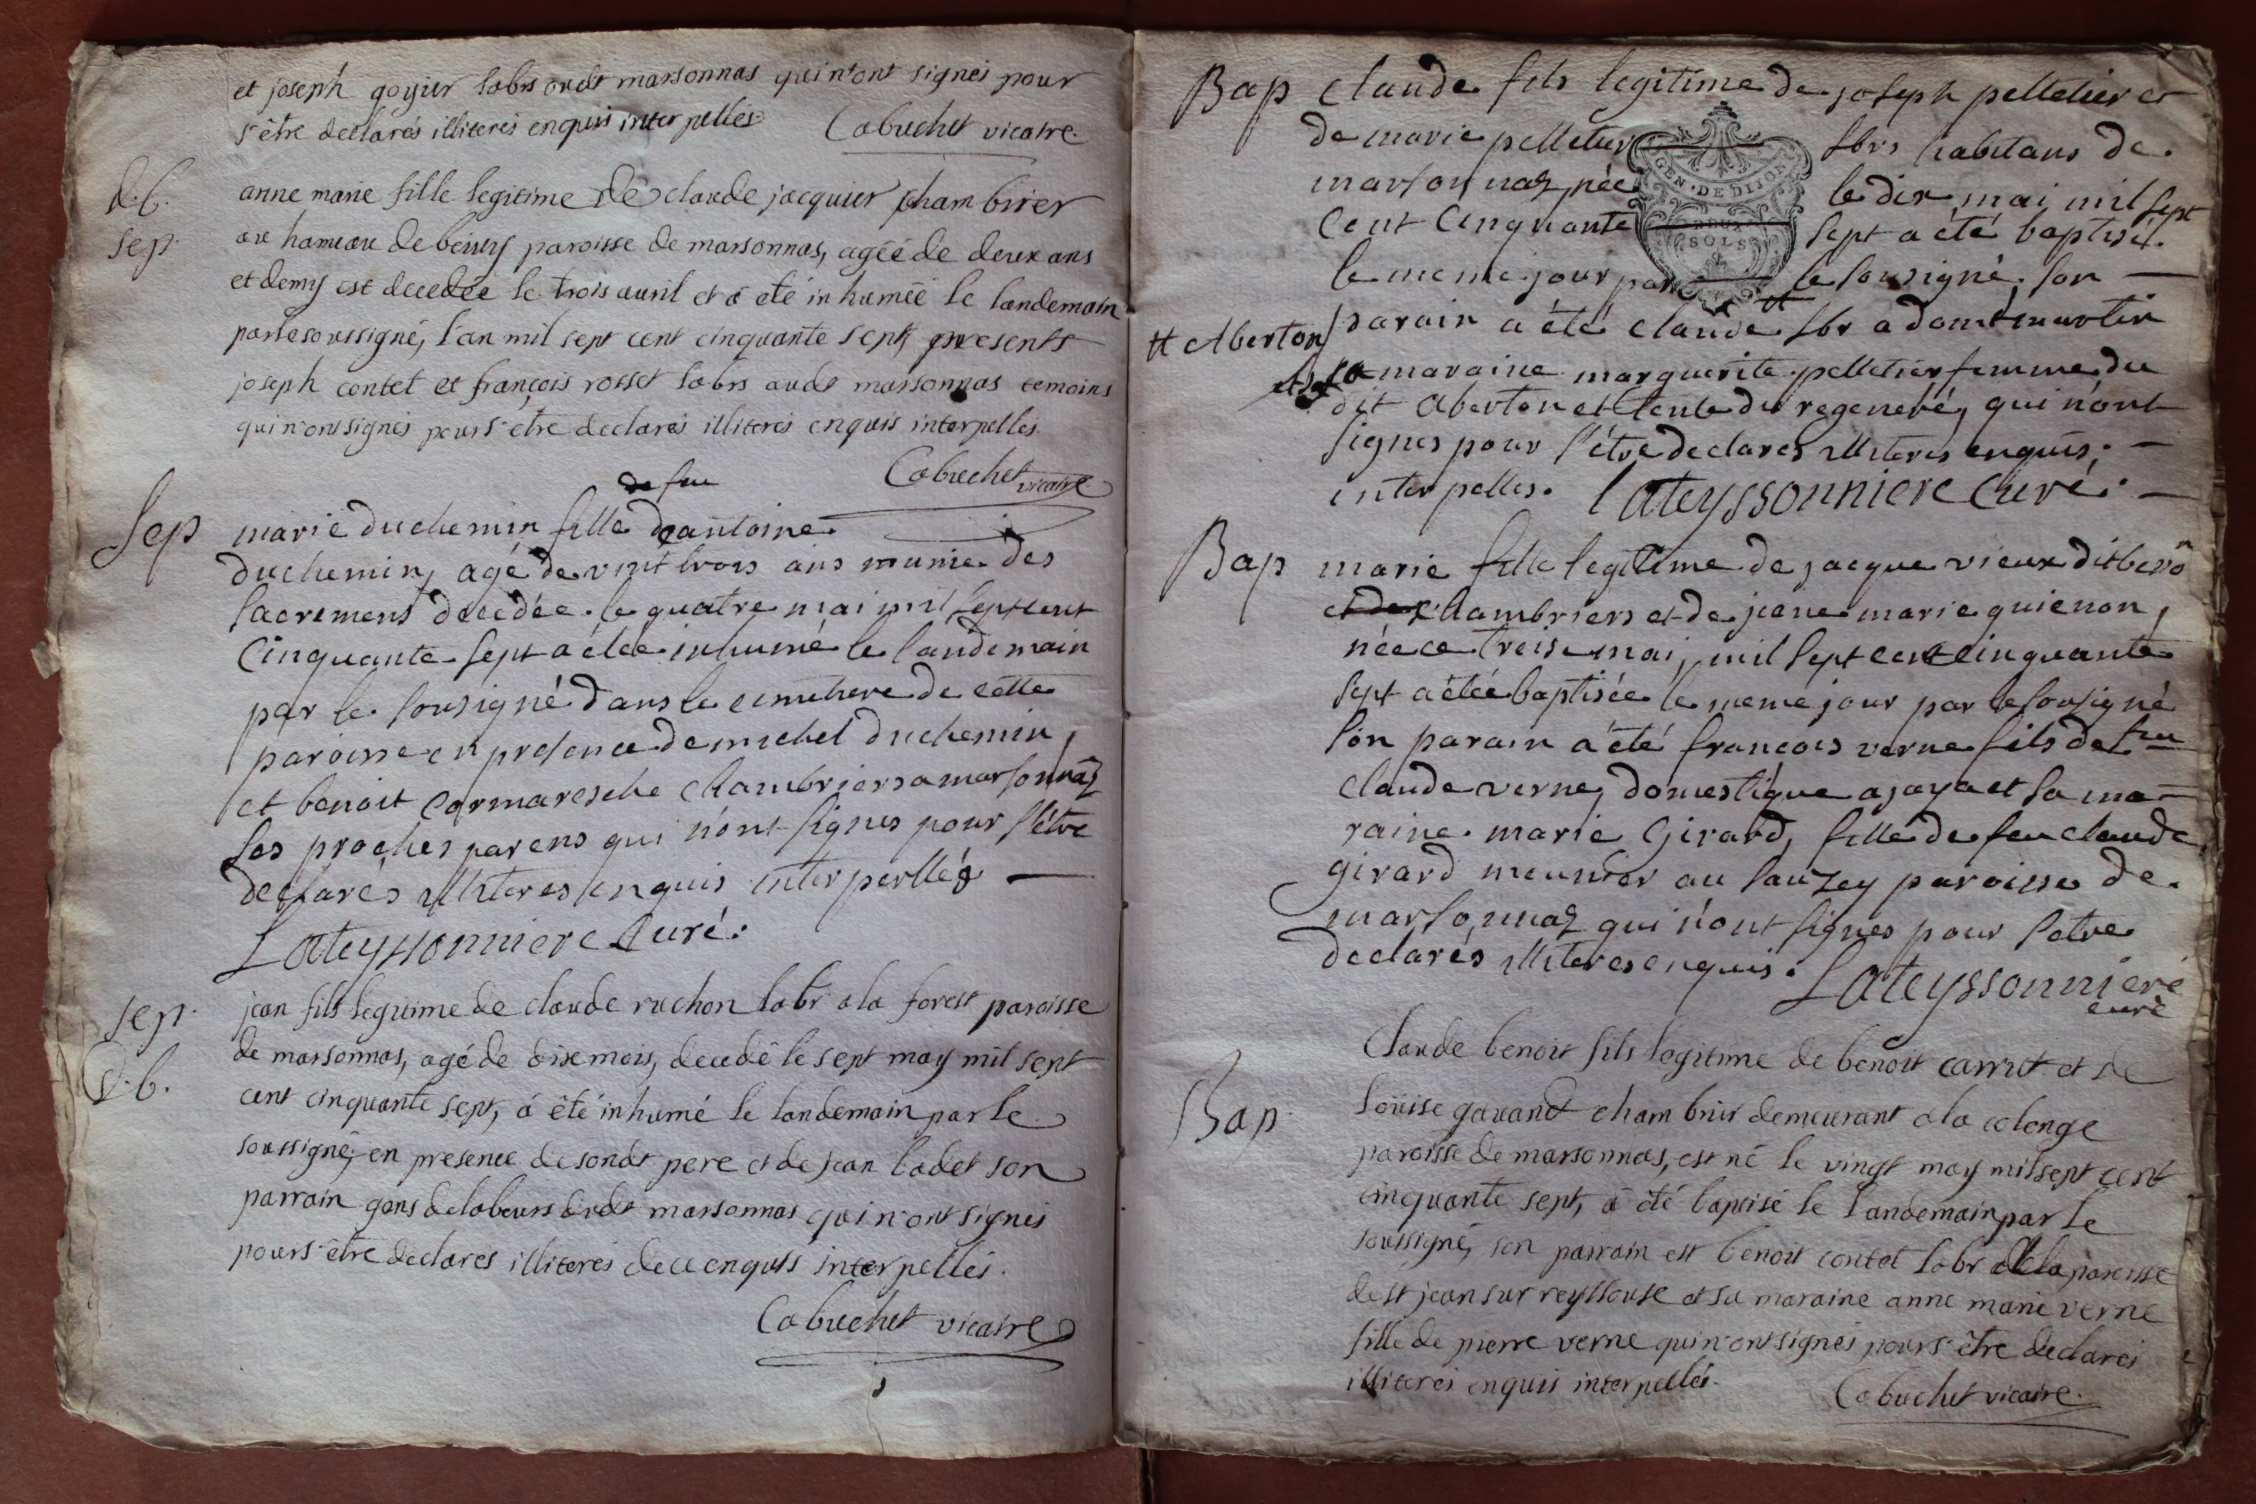 et joseph goyier labrs audt marsonnas qui n'ont signés pour
s'être declarés illiterés enquis interpellés Cabuchet vicaire.
d.b. sep. anne marie fille legitime de claude jacquier chambrier
au hameau de beuvy paroisse de marsonnas, agéé de deux ans
et demy est decedéé le trois avril et á eté inhuméé le landemain
par le soussigné, l'an mil sept cent cinquante sept, presents
joseph contet et françois rosset labrs audt marsonnas temoins
qui n'ont signés pour s'etre declarés illiterés enquis interpellés
Cabuchet vicaire
de feu
Sep marie duchemin fille de antoine
duchemin, agé de vint trois ans munie des
sacremens decedée le quatre mai mil sept cent
cinquante sept a étée inhumé le landemain
par le sousigné dans le cimetiere de cette
paroisse en presence de michel duchemin,
et benoit cormaresche chambriers a marsonnaz
ses proches parens qui n'ont signes pour s'étre
declarés illiteres enquis interpellés
Lateyssonniere Curé.
sep. d.b. jean fils legitime de claude ruchon labr a la forest paroisse
de marsonnas, agé de dixe mois, decedé le sept may mil sept
cent cinquante sept, á été inhumé le landemain par le
soussigné, en presence de sondt pere et de jean cadet son
parrain gens de labeurs dudt marsonnas qui n'ont signés
pour s'être declarés illiterés de ce enquis interpellés.
Cabuchet vicaire
Bap Claude fils legitime de joseph pelletier et
de marie pelletier lbrs habitans de
marsonnaz, née le dix mai mil sept
cent cinquante sept a été baptisé
le meme jour par le sousigné. son
parain a été claude # lbr a domt martin
# Aberton
sa maraine marguerite pelletier femme du
dit Aberton et tente du regeneré, qui n'ont
signes pour s'étre declares illiteres enquis,
interpelles. Lateyssonniere Curé.
GEN. DE DIJON
DEUX
SOLS
Bap marie fille legitime de jacque vieux dit
chambriers et de jeane marie guienon,
née ce treise mai, mil sept cent cinquante
sept a étée baptisée le meme jour par le sousigné
son parain a été francois verne fils de feu
claude verne, domestique a jaya et sa ma-
raine marie Girard, fille de feu claude
girard meunier au sauzey paroisse de
marsonnaz qui n'ont signes pour s'etre
declarés illiteres enquis. Lateyssonniere
curé
Bap. Claude benoit fils legitime de benoit carrut et de
loüise gavand chambrier demeurant a la colonge
paroisse de marsonnas, est né le vingt may mil sept cent
cinquante sept, á été baptisé le landemain par le
soussigné, son parrain est benoit contet labr de la paroisse
de st jean sur reyssouse et sa maraine anne marie verne
fille de pierre verne qui n'ont signés pour s'être declarés
illiterés enquis interpellés. Cabuchet vicaire.